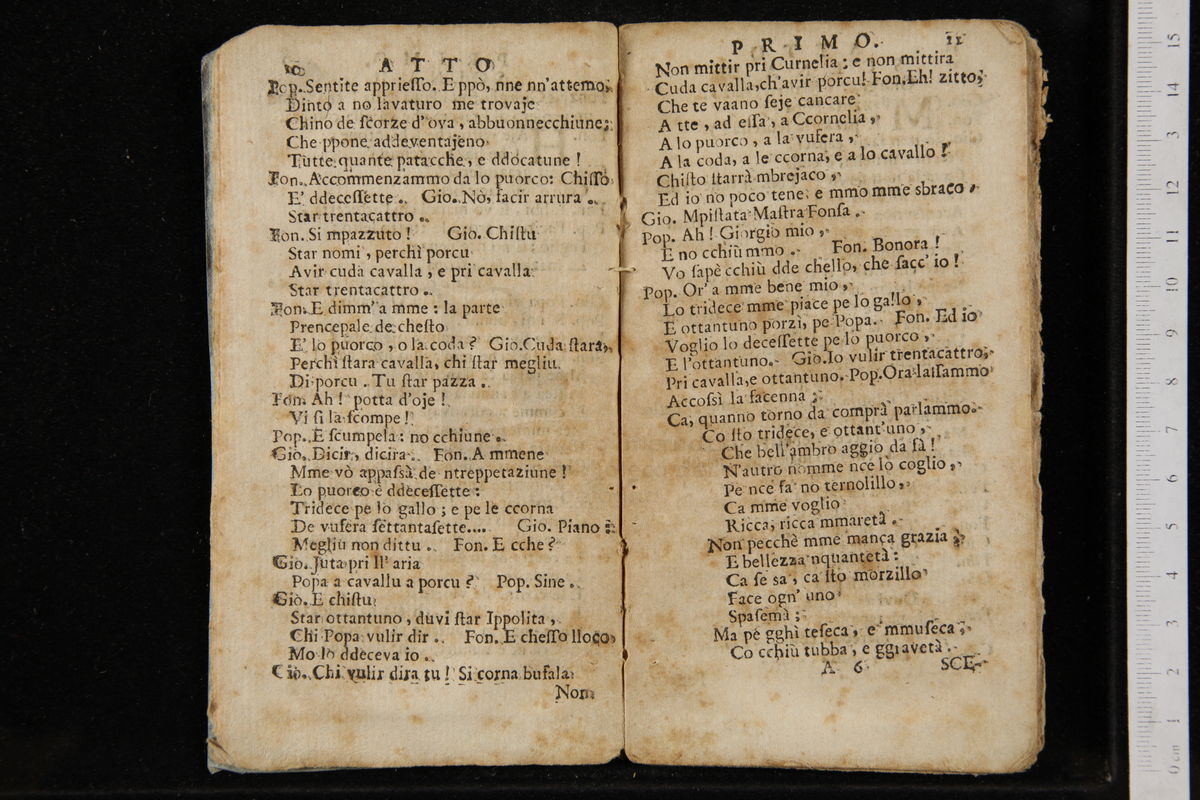 10 ATTO
Pop. Sentite appriesso. E ppò, nne nn'attemo,
Dinto a no lavaturo me trovaje
Chino de scorze d'ova, abbuonnecchiune;
Che ppone addeventajeno
Tutte quante patacche, e ddocatune!
Fon. Accommenzammo da lo puorco: Chisso
E' ddecessette. Gio. Nò, facir arrura.
Star trentacattro.
Fon. Si mpazzuto! Gio. Chistu
Star nomi, perchì porcu
Avir cuda cavalla, e pri cavalla
Star trentacattro.
Fon. E dimm'a mme: la parte
Prencepale de chesto
E' lo puorco, o la coda? Gio. Cuda stara,
Perchì stara cavalla, chi star megliu
Di porcu. Tu star pazza.
Fon. Ah! potta d'oje!
Vi si la scompe!
Pop. E scumpela: no cchiune.
Giò. Dicir, dicira. Fon. A mmene
Mme vò appassà de ntreppetaziune!
Lo puorco è ddecessette:
Tridece pe lo gallo; e pe le ccorna
De vufera settantasette.... Gio. Piano:
Megliu non dittu. Fon. E cche?
Gio. Juta pri ll'aria
Popa a cavallu a porcu? Pop. Sine.
Giò. E chistu
Star ottantuno, duvi star Ippolita,
Chi Popa vulir dir. Fon. E chesso lloco,
Mo lo ddeceva io.
Giò. Chi vulir dira tu! Si corna bufala
Non
PRIMO. 11
Non mittir pri Curnelia: e non mittira
Cuda cavalla, ch'avir porcu! Fon. Eh! zitto;
Che te vaano seje cancare
A tte, ad essa, a Ccornelia,
A lo puorco, a la vufera,
A la coda, a le ccorna, e a lo cavallo!
Chisto starrà mbrejaco,
Ed io no poco tene, e mmo mme sbraco.
Gio. Mpistata Mastra Fonsa.
Pop. Ah! Giorgio mio,
E no cchiù mmo. Fon. Bonora!
Vo sapè cchiù dde chello, che sacc'io!
Pop. Or'a mme bene mio,
Lo tridece mme piace pe lo gallo,
E ottantuno porzì, pe Popa. Fon. Ed io
Voglio lo decessette pe lo puorco,
E l'ottantuno. Gio. Io vulir trentacattro,
Pri cavalla, e ottantuno. Pop. Ora lassammo
Accossì la facenna;
Ca, quanno torno da comprà parlammo.
Co sto tridece, e ottant'uno,
Che bell'ambro aggio da fà!
N'autro nomme nce lo coglio,
Pe nce fa no ternolillo,
Ca mme voglio
Ricca, ricca mmaretà.
Non pecchè mme manca grazia,
E bellezza nquantetà:
Ca se sa, ca sto morzillo
Face ogn'uno
Spasemà;
Ma pe gghì teseca, e mmuseca,
Co cchiù tubba, e ggiavetà.
A 6 SCE-